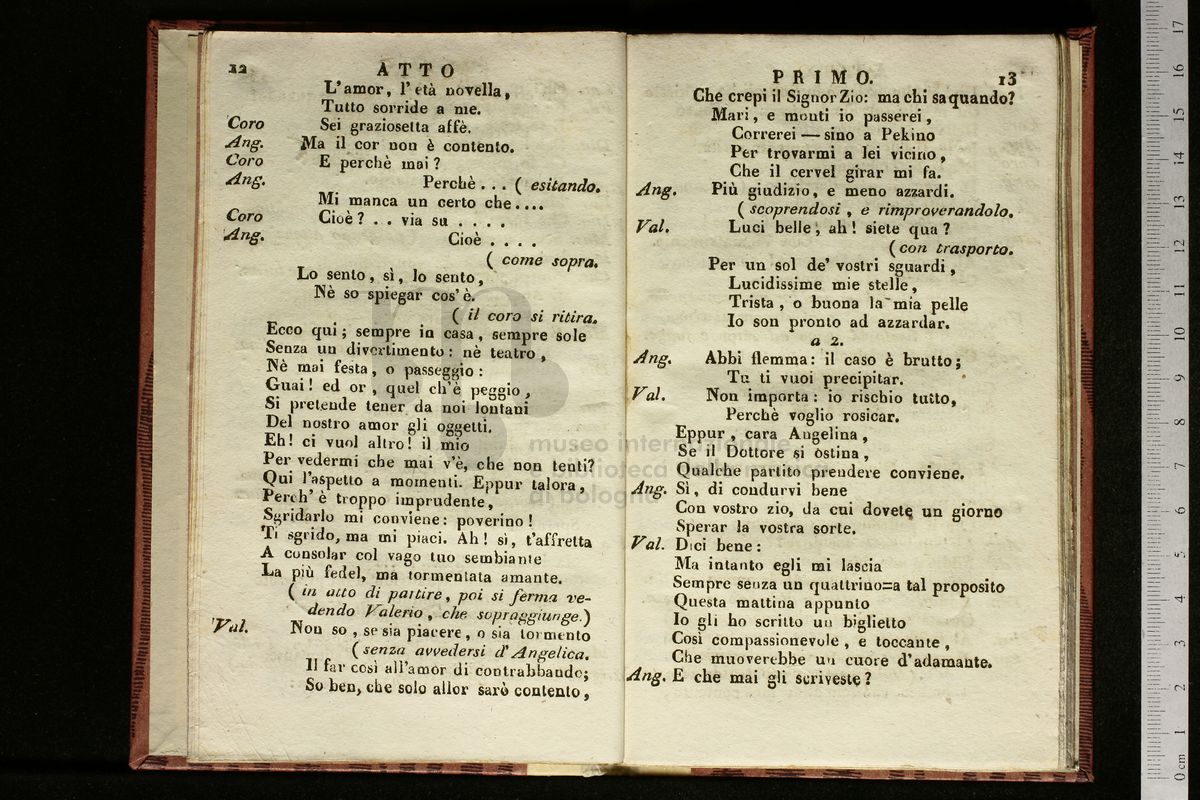 12
ATTO
L'amor, l'età novella,
Tutto sorride a me.
Coro Sei graziosetta affè.
Ang. Ma il cor non è contento.
Coro E perchè mai?
Ang. Perchè... ( esitando.
Mi manca un certo che....
Coro Cioè? .. via su ....
Ang. Cioè ....
( come sopra.
Lo sento, sì, lo sento,
Nè so spiegar cos'è.
( il coro si ritira.
Ecco qui; sempre in casa, sempre sole
Senza un divertimento: nè teatro,
Nè mai festa, o passeggio:
Guai! ed or, quel ch'è peggio,
Si pretende tener da noi lontani
Del nostro amor gli oggetti.
Eh! ci vuol altro! il mio
Per vedermi che mai v'è, che non tenti?
Qui l'aspetto a momenti. Eppur talora,
Perch' è troppo imprudente,
Sgridarlo mi conviene: poverino!
Ti sgrido, ma mi piaci. Ah! sì, t'affretta
A consolar col vago tuo sembiante
La più fedel, ma tormentata amante.
( in atto di partire, poi si ferma ve-
dendo Valerio, che sopraggiunge.)
Val. Non so, se sia piacere, o sia tormento
( senza avvedersi d'Angelica.
Il far così all'amor di contrabbando;
So ben, che solo allor sarò contento,
PRIMO.
13
Che crepi il Signor Zio: ma chi sa quando?
Mari, e monti io passerei,
Correrei — sino a Pekino
Per trovarmi a lei vicino,
Che il cervel girar mi fa.
Ang. Più giudizio, e meno azzardi.
( scoprendosi, e rimproverandolo.
Val. Luci belle, ah! siete qua?
( con trasporto.
Per un sol de' vostri sguardi,
Lucidissime mie stelle,
Trista, o buona la mia pelle
Io son pronto ad azzardar.
a 2.
Ang. Abbi flemma: il caso è brutto;
Tu ti vuoi precipitar.
Val. Non importa: io rischio tutto,
Perchè voglio rosicar.
Eppur, cara Angelina,
Se il Dottore si ostina,
Qualche partito prendere conviene.
Ang. Sì, di condurvi bene
Con vostro zio, da cui dovete un giorno
Sperar la vostra sorte.
Val. Dici bene:
Ma intanto egli mi lascia
Sempre senza un quattrino=a tal proposito
Questa mattina appunto
Io gli ho scritto un biglietto
Così compassionevole, e toccante,
Che muoverebbe un cuore d'adamante.
Ang. E che mai gli scriveste?
museo internazionale
biblioteca della musica
di bologna
0 cm 1 2 3 4 5 6 7 8 9 10 11 12 13 14 15 16 17